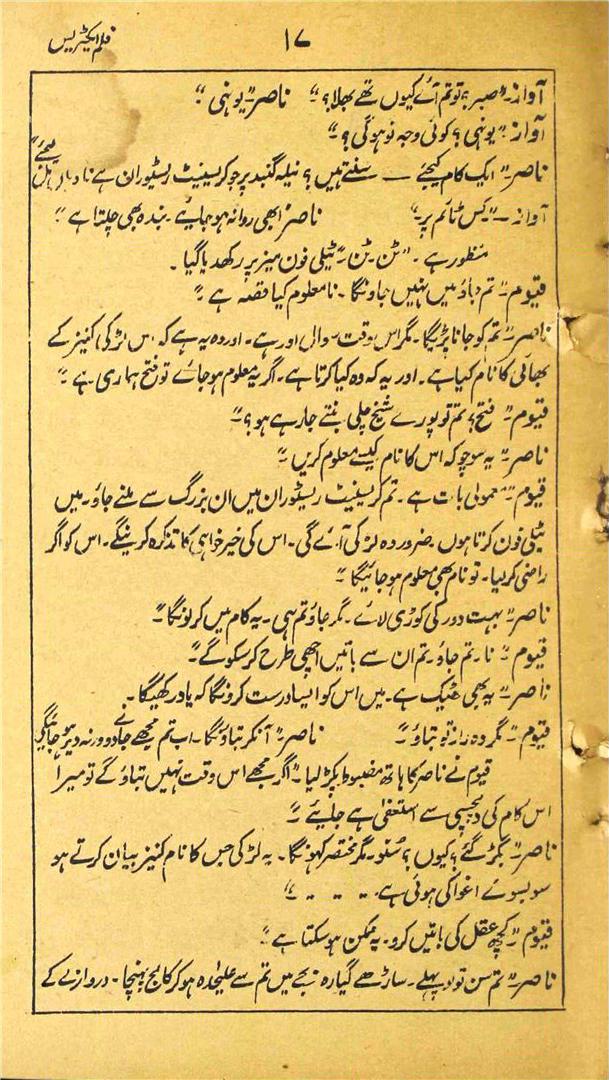 فلم ایکٹریس
۱۷
آواز۔ "صبر؟ تو تم آئے کیوں تھے بھلا؟" ناصر۔ "یونہی"
آواز۔ "یونہی؟ کوئی وجہ تو ہوگی؟"
ناصر۔ "ایک کام کیجئے — سنتے ہیں؟ نیلہ گنبد پر جو کریسینٹ ریسٹوران ہے نا وہاں مل لیجئے"
آواز۔ "کس ٹائم پر" ناصر "ابھی روانہ ہو جایئے۔ بندہ بھی چلتا ہے"
منظور ہے۔ "ٹن۔ ٹن" ٹیلی فون میز پر رکھ دیا گیا۔
قیوم۔ "تم جاؤ میں نہیں جاؤنگا۔ نامعلوم کیا قصہ ہے"
ناصر۔ "تم کو جانا پڑیگا۔ مگر اس وقت سوال اور ہے۔ اور وہ یہ ہے کہ اس لڑکی کنیز کے
بھائی کا نام کیا ہے۔ اور یہ کہ وہ کیا کرتا ہے۔ اگر یہ معلوم ہو جائے تو فتح ہماری ہے"
قیوم۔ "فتح؟ تم تو پورے شیخ چلی بنتے جا رہے ہو؟"
ناصر۔ "یہ سوچو کہ اس کا نام کیسے معلوم کریں"
قیوم۔ "معمولی بات ہے۔ تم کریسینٹ ریسٹوران میں ان بزرگ سے ملنے جاؤ۔ میں
ٹیلی فون کرتا ہوں۔ ضرور وہ لڑکی آئے گی۔ اس کی خیر خواہی کا تذکرہ کرینگے۔ اس کو اگر
راضی کر لیا۔ تو نام بھی معلوم ہو جائیگا"
ناصر۔ "بہت دور کی کوڑی لائے۔ مگر جاؤ تم ہی۔ یہ کام میں کر لونگا"
قیوم۔ "نا۔ تم جاؤ۔ تم ان سے باتیں اچھی طرح کر سکو گے"
ناصر۔ "یہ بھی ٹھیک ہے۔ میں اس کو ایسا درست کرونگا کہ یاد رکھیگا۔
قیوم۔ "مگر وہ راز تو بتاؤ" ناصر "آنکر بتاؤنگا۔ اب تم مجھے جانے دو ورنہ دیر ہو جائیگی
قیوم نے ناصر کا ہاتھ مضبوط پکڑ لیا۔ "اگر مجھے اس وقت نہیں بتاؤ گے تو میرا
اس کام کی دلچسپی سے استعفیٰ ہے جایئے"
ناصر۔ "بگڑ گئے؟ کیوں؟ سنو۔ مگر مختصر کہونگا۔ یہ لڑکی جس کا نام کنیز بیان کرتے ہو
سو بسوئے اغوا کی ہوئی ہے۔ ۔ ۔ ۔ ۔"
قیوم۔ "کچھ عقل کی باتیں کرو۔ یہ ممکن ہو سکتا ہے"
ناصر۔ "تم سن تو لو پہلے۔ ساڑھے گیارہ بجے میں تم سے علیحدہ ہو کر کالج پہنچا۔ دروازے کے